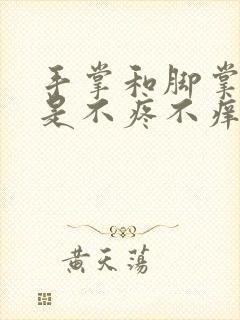 手掌和脚掌
是不疼不痒
黄天荡